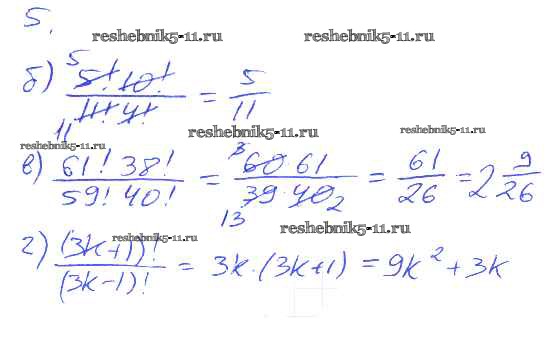 5.
reshebnik5-11.ru reshebnik5-11.ru
б) 5! 10! / 11! 4! = 5/11
5
11
reshebnik5-11.ru reshebnik5-11.ru reshebnik5-11.ru
в) 61! 38! / 59! 40! = 60·61 / 39·40 = 61/26 = 2 9/26
3
13 2
reshebnik5-11.ru reshebnik5-11.ru
г) (3k+1)! / (3k-1)! = 3k·(3k+1) = 9k² + 3k